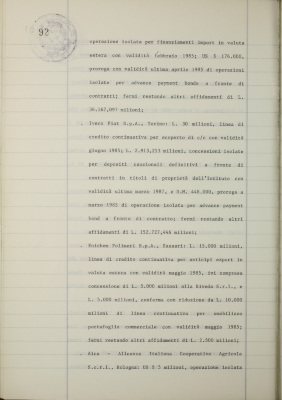 92
operazione isolata per finanziamenti import in valuta
estera con validità febbraio 1985; US $ 174.000,
proroga con validità ultima aprile 1985 di operazioni
isolata per advance payment bonds a fronte di
contratti; fermi restando altri affidamenti di L.
36.567,097 milioni;
. Iveco Fiat S.p.A., Torino: L. 30 milioni, linea di
credito continuativa per scoperto di c/c con validità
giugno 1985; L. 2.913,213 milioni, concessioni isolate
per depositi cauzionali definitivi a fronte di
contratti in titoli di proprietà dell'Istituto con
validità ultima marzo 1987, e D.M. 448.000, proroga a
marzo 1985 di operazione isolata per advance payment
bond a fronte di contratto; fermi restando altri
affidamenti di L. 152.727,446 milioni;
. Enichem Polimeri S.p.A., Sassari: L. 15.000 milioni,
linea di credito continuativa per anticipi export in
valuta estera con validità maggio 1985, ivi compresa
concessione di L. 5.000 milioni alla S.r.l., e
L. 5.000 milioni, conferma con riduzione da L. 10.000
milioni di linea continuativa per smobilizzo
portafoglio commerciale con validità maggio 1985;
fermi restando altri affidamenti di L. 2.500 milioni;
. Aica - Alleanza Italiana Cooperative Agricole
S.c.r.l., Bologna: US $ 3 milioni, operazione isolata